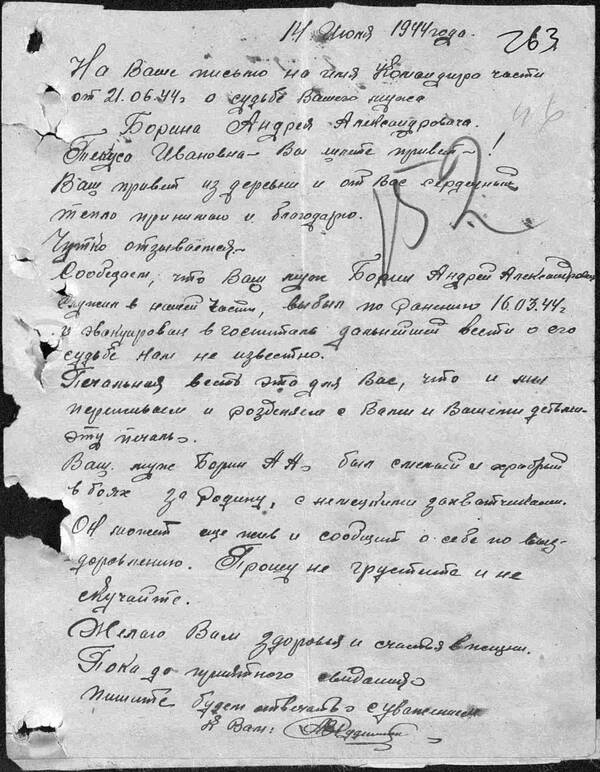 14 Июля 1944 года.
263
На Ваше письмо на имя Командира части
от 21.06.44г о судьбе Вашего мужа
Борина Андрея Александровича.
Ивановна Вы шлете привет !
Ваш привет из деревни и от Вас сердечный
тепло принимаю и благодарю.
152
Чутко отзываемся
Сообщаем, что Ваш муж Борин Андрей Александрович
служил в нашей части, выбыл по ранению 16.03.44г
и эвакуирован в госпиталь дальнейшей вести о его
судьбе нам не известно.
Печальная весть это для Вас, что и мы
переживаем и разделяем с Вами и Вашими детьми
эту печаль.
Ваш муж Борин А.А. был смелый и храбрый
в боях за Родину, с немецкими захватчиками.
Он может еще жив и сообщит о себе по выз-
доровлению. Прошу не грустите и не
скучайте.
Желаю Вам здоровья и счастья в жизни.
Пока до приятного свидания
пишите будем отвечать с уважением
к Вам: